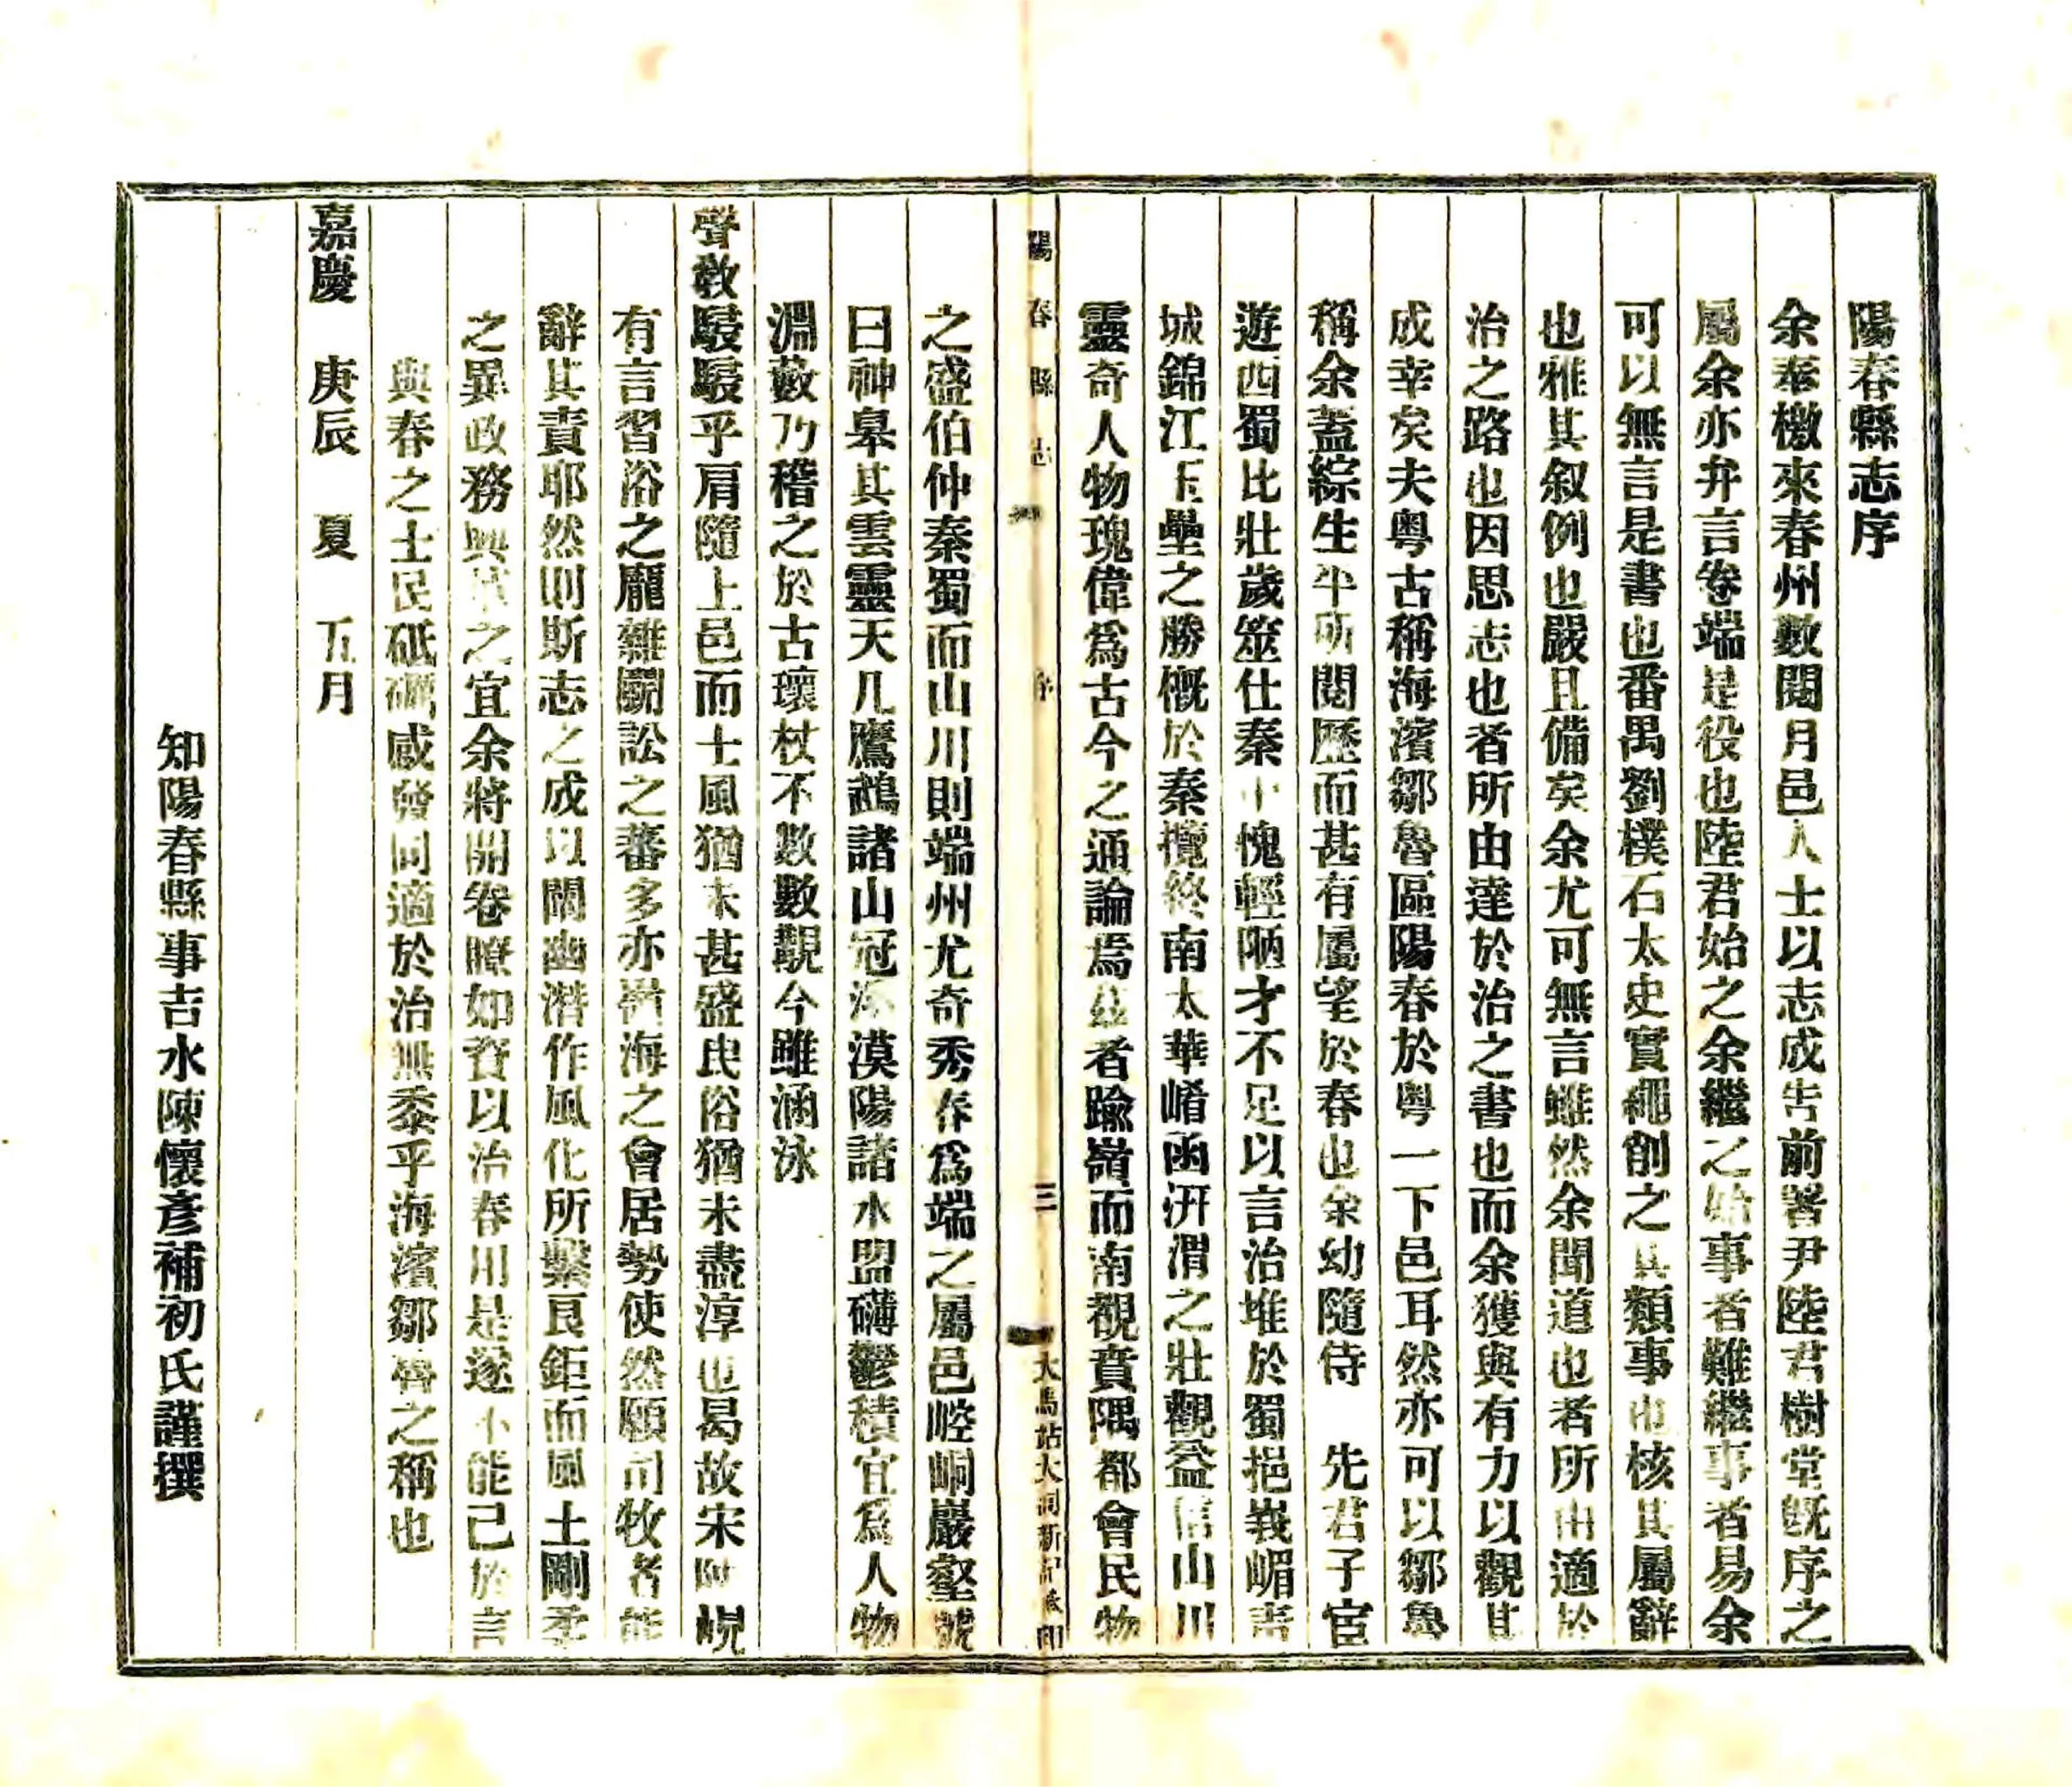 陽春縣志序
余奉檄來春州數閱月邑人士以志成告前署尹陸君樹堂旣序之
屬余亦弁言卷端是役也陸君始之余繼之始事者難繼事者易余
可以無言是書也番禺劉樸石太史實繩創之其類事也核其屬辭
也雅其叙例也嚴且備矣余尤可無言雖然余聞道也者所由適於
治之路也因思志也者所由達於治之書也而余獲與有力以觀其
成幸矣夫粵古稱海濱鄒魯區陽春於粵一下邑耳然亦可以鄒魯
稱余蓋綜生平所閱歷而甚有屬望於春也余幼隨侍 先君子宦
遊西蜀比壯歲筮仕秦中愧輕陋才不足以言治堆於蜀挹峩嵋靑
城錦江玉壘之勝槪於秦攬終南太華崤函汧渭之壯觀益信山川
靈奇人物瑰偉爲古今之通論焉茲者踰嶺而南觀賁隅都會民物
陽春縣志
序
三
大馬站大洞新記承印
之盛伯仲秦蜀而山川則端州尤奇秀春爲端之屬邑崆峒巖壑號
曰神皋其雲靈天几鷹鵡諸山冠 漠陽諸水盟礴鬱積宜爲人物
淵藪乃稽之於古瓌杖不數數覯今雖涵泳
聲敎駸駸乎肩隨上邑而士風猶未甚盛民俗猶未盡淳也曷故宋 峴
有言習俗之龐雜鬬訟之蕃多亦嶺海之會居勢使然願司牧者能
辭其責耶然則斯志之成以闡幽潛作風化所繫良鉅而風土剛柔
之異政務興革之宜余將開卷瞭如資以治春用是遂不能已於言
與春之士民砥礪感發同適於治無忝乎海濱鄒魯之稱也
嘉慶 庚辰 夏 五月
知陽春縣事吉水陳懷彥補初氏謹撰